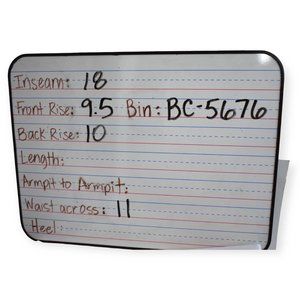 Inseam: 18
Front Rise: 9.5 Bin: BC-5676
Back Rise: 10
Length:
Armpit to Armpit:
Waist across: 11
Heel: